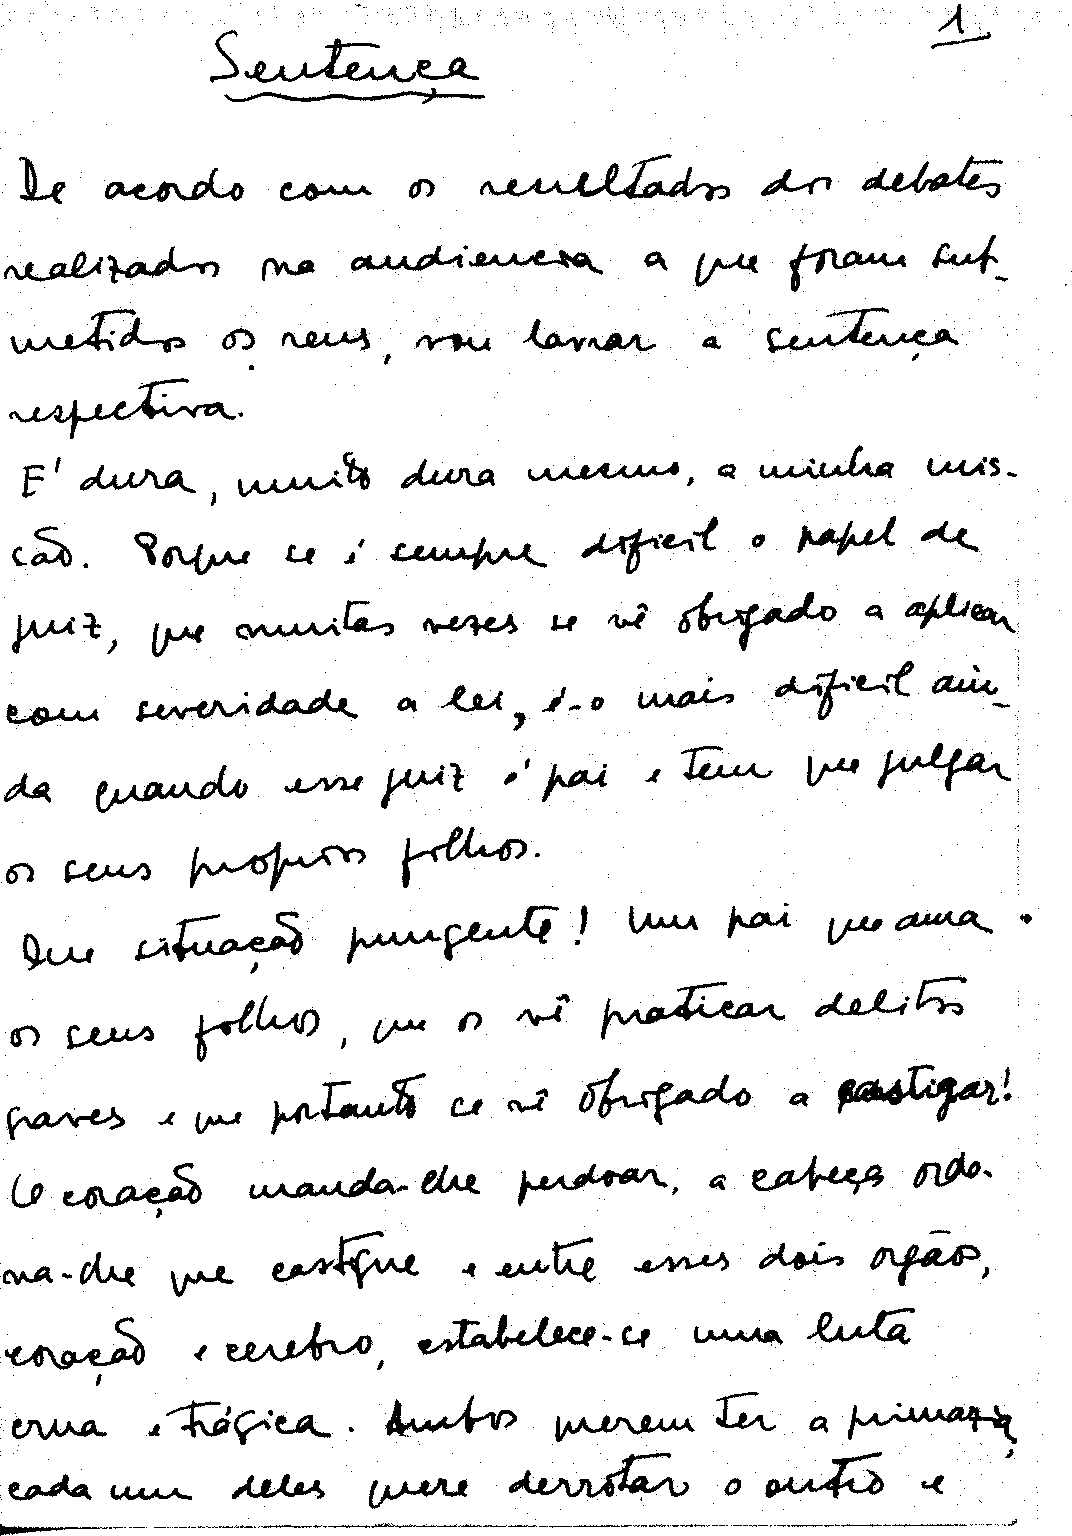 1
Sentença
De acordo com os resultados dos debates
realizados na audiencia a que foram sub-
metidos os reus, vou lavrar a sentença
respectiva.
E' dura, muito dura mesmo, a minha mis-
são. Porque se é sempre dificil o papel de
juiz, que muitas vezes se vê obrigado a aplicar
com severidade a lei, é-o mais dificil ain-
da quando esse juiz é pai e tem que julgar
os seus proprios filhos.
Que situação pungente! Um pai que ama
os seus filhos, que os vê praticar delitos
graves e que portanto se vê obrigado a castigar!
O coração manda-lhe perdoar, a cabeça orde-
na-lhe que castigue e entre esses dois orgãos,
coração e cerebro, estabelece-se uma luta
crua e trágica. Ambos querem ter a primazia,
cada um deles quere derrotar o outro e